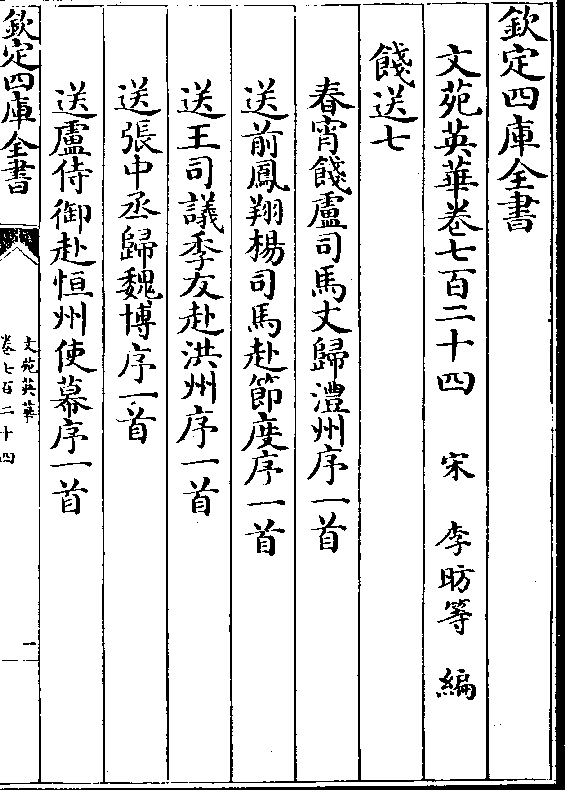 欽定四庫全書
文苑英華卷七百二十四 宋 李昉等 編
餞送七
春宵餞盧司馬丈歸澧州序一首
送前鳳翔楊司馬赴節度序一首
送王司議季友赴洪州序一首
送張中丞歸魏博序一首
送盧侍御赴恒州使幕序一首
欽定四庫全書
文苑英華
卷七百二十四
一